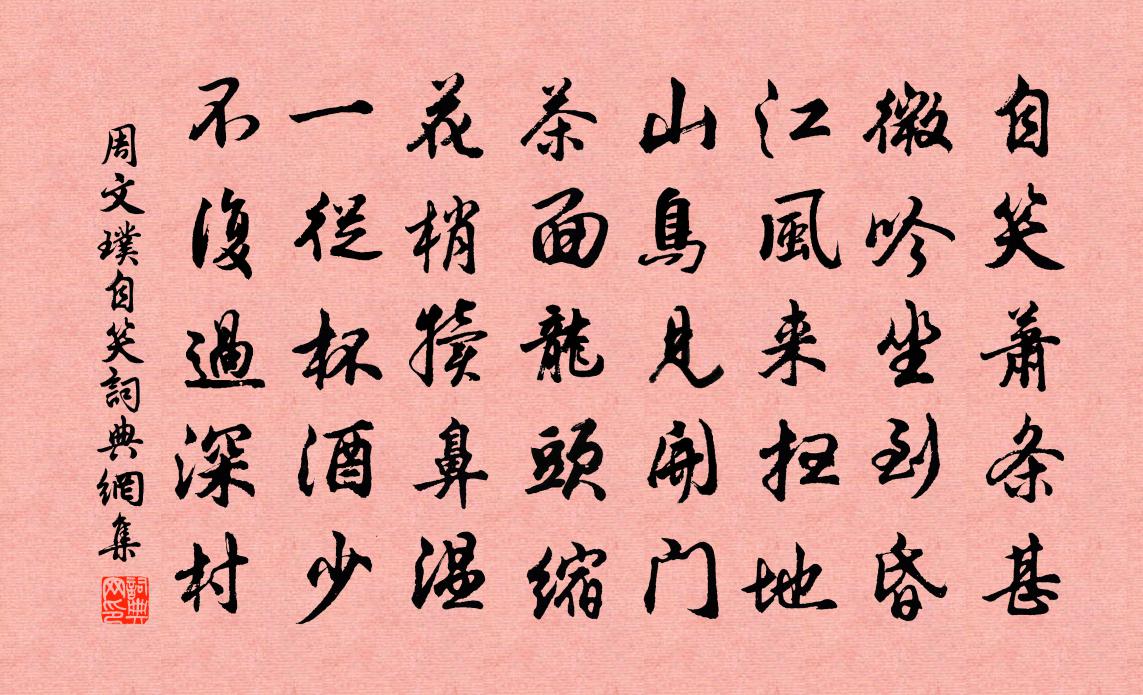 自笑蕭条甚
微吟坐到昏
江風来扫地
山鳥見開门
茶面龍頭縮
花梢犢鼻温
一從杯酒少
不復過深村
周文璞自笑詞典網集
詞典网印